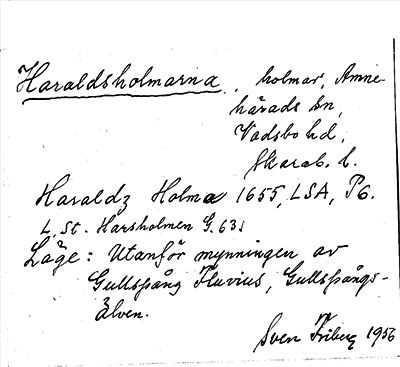 Haraldsholmarna, holmar, Amne-
härads sn,
Vadsbo hd,
Skarab. l.
Haraldz Holma 1655, LSA, P6.
L. St. Harsholmen G. 631
Läge: Utanför mynningen av
Gullspång Fluvius, Gullspångs-
älven.
Sven Friberg 1956